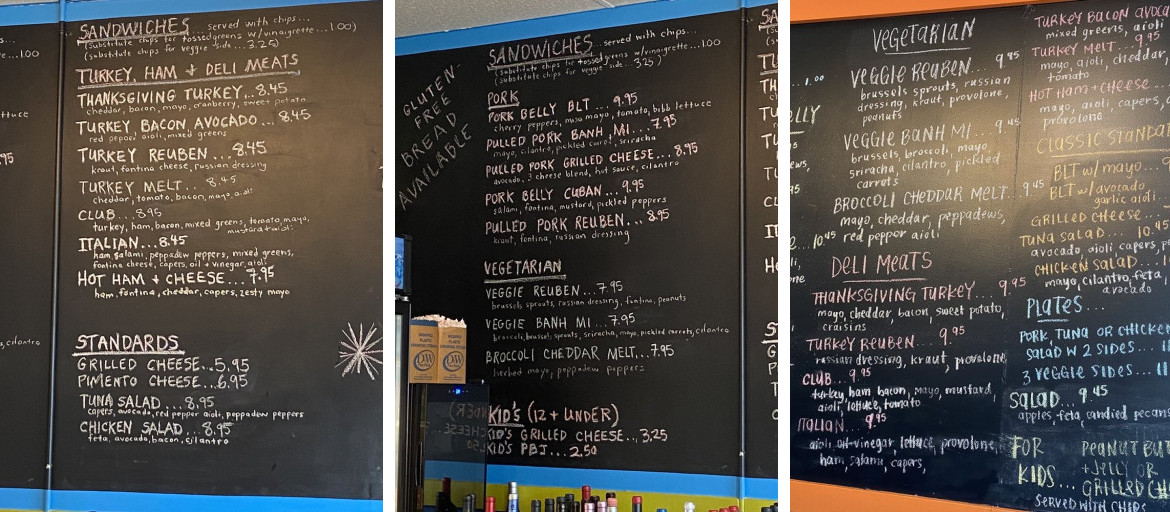 ...1.00
SANDWICHES served with chips...
(substitute chips for tossed greens w/vinaigrette...1.00)
(substitute chips for veggie side...3.25)
TURKEY, HAM + DELI MEATS
THANKSGIVING TURKEY..8.45
cheddar, bacon, mayo, cranberry, sweet potato
TURKEY, BACON, AVOCADO...8.45
red pepper aioli, mixed greens
TURKEY REUBEN...8.45
kraut, fontina cheese, russian dressing
TURKEY MELT...8.45
cheddar, tomato, bacon, mayo, aioli
CLUB...8.95
turkey, ham, bacon, mixed greens, tomato, mayo,
mustard + aioli
ITALIAN...8.45
ham, salami, peppadew peppers, mixed greens,
fontina cheese, capers, oil + vinegar, aioli
HOT HAM + CHEESE...7.95
ham, fontina, cheddar, capers, zesty mayo
STANDARDS
GRILLED CHEESE..5.95
PIMENTO CHEESE...6.95
TUNA SALAD...8.95
capers, avocado, red pepper aioli, peppadew peppers
CHICKEN SALAD...8.95
feta, avocado, bacon, cilantro
GLUTEN-
FREE
BREAD
AVAILABLE
SANDWICHES served with chips...
(substitute chips for tossed greens w/vinaigrette...1.00
(substitute chips for veggie side...3.25)
PORK
PORK BELLY BLT...9.95
cherry peppers, nuso mayo, tomato, bibb lettuce
PULLED PORK BANH MI...7.95
mayo, cilantro, pickled carrot, sriracha
PULLED PORK GRILLED CHEESE...8.95
avocado, 3 cheese blend, hot sauce, cilantro
PORK BELLY CUBAN...9.95
salami, fontina, mustard, pickled peppers
PULLED PORK REUBEN...8.95
kraut, fontina, russian dressing
VEGETARIAN
VEGGIE REUBEN...7.95
brussels sprouts, russian dressing, fontina, peanuts
VEGGIE BANH MI...7.95
broccoli, brussel sprouts, sriracha, mayo, pickled carrots, cilantro
BROCCOLI CHEDDAR MELT...7.95
herbed mayo, peppadew peppers
KID'S (12 + UNDER)
KID'S GRILLED CHEESE...3.25
KID'S PBJ...2.50
VEGETARIAN
VEGGIE REUBEN...9.95
brussels sprouts, russian
dressing, kraut, provolone,
peanuts
VEGGIE BANH MI...9.45
brussels, broccoli, mayo,
sriracha, cilantro, pickled
carrots
BROCCOLI CHEDDAR MELT...9.45
mayo, cheddar, peppadews,
red pepper aioli
DELI MEATS
THANKSGIVING TURKEY...9.95
mayo, cheddar, bacon, sweet potato,
craisins
TURKEY REUBEN...9.95
russian dressing, kraut, provolone
CLUB...9.95
turkey, ham, bacon, mayo, mustard,
aioli, lettuce, tomato
ITALIAN...9.95
aioli, oil + vinegar, lettuce, provolone,
ham, salami, capers,
...1.00
...10.45
TURKEY BACON AVOCA
mixed greens, aioli
TURKEY MELT...9.95
mayo, aioli, cheddar,
tomato
HOT HAM + CHEESE...
mayo, aioli, capers,
provolone
CLASSIC STANDA
BLT w/ mayo...
BLT w/ avocado
garlic aioli
GRILLED CHEESE...
TUNA SALAD...10.45
avocado, aioli, capers, p
CHICKEN SALAD...10
mayo, cilantro, feta,
avocado
PLATES...
PORK, TUNA OR CHICKEN
SALAD W 2 SIDES...1
3 VEGGIE SIDES...11
SALAD...9.45
apples, feta, candied pecans
FOR KIDS...
PEANUT BUT
+ JELLY OR
GRILLED CH
SERVED WITH CHIPS